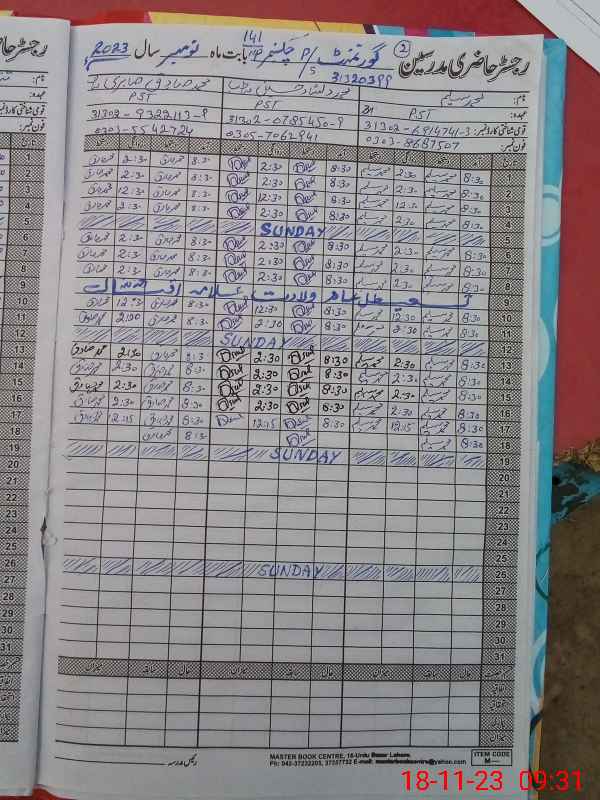 رجسٹر حاضری مدرسین گورنمنٹ P/S چک نمبر 141/P بابت ماہ نومبر سال 2023
31320399
نام: محمد سلیم محمد دلشاد حسین محمد صادق صابری
عہدہ: PST PST PST
قومی شناختی کارڈ نمبر: 31302-6914741-3 31302-0785450-9 31302-9322113-9
فون نمبر: 0303-8687507 0305-7062941 0301-5542724
1 8:30 محمد سلیم 2:30 محمد سلیم 8:30 2:30 8:30 محمد صادق 2:30 محمد صادق
2 8:30 محمد سلیم 2:30 محمد سلیم 8:30 2:30 8:30 محمد صادق 2:30 محمد صادق
3 8:30 محمد سلیم 12:30 محمد سلیم 8:30 12:30 8:30 محمد صادق 12:30 محمد صادق
4 8:30 محمد سلیم 2:30 محمد سلیم 8:30 2:30 8:30 محمد صادق 2:30 محمد صادق
5 SUNDAY
6 8:30 محمد سلیم 2:30 محمد سلیم 8:30 2:30 8:30 محمد صادق 2:30 محمد صادق
7 8:30 محمد سلیم 2:30 محمد سلیم 8:30 2:30 8:30 محمد صادق 2:30 محمد صادق
8 8:30 محمد سلیم 2:30 محمد سلیم 8:30 2:30 8:30 محمد صادق 2:30 محمد صادق
9 تعطیل عام ولادت علامہ اقبال
10 8:30 محمد سلیم 12:30 محمد سلیم 8:30 12:30 8:30 محمد صادق 12:30 محمد صادق
11 8:30 محمد سلیم 2:30 محمد سلیم 8:30 2:30 8:30 محمد صادق 2:30 محمد صادق
12 SUNDAY
13 8:30 محمد سلیم 2:30 محمد سلیم 8:30 2:30 8:30 محمد صادق 2:30 محمد صادق
14 8:30 محمد سلیم 2:30 محمد سلیم 8:30 2:30 8:30 محمد صادق 2:30 محمد صادق
15 8:30 محمد سلیم 2:30 محمد سلیم 8:30 2:30 8:30 محمد صادق 2:30 محمد صادق
16 8:30 محمد سلیم 2:30 محمد سلیم 8:30 2:30 8:30 محمد صادق 2:30 محمد صادق
17 8:30 محمد سلیم 12:15 محمد سلیم 8:30 12:15 8:30 محمد صادق 12:15 محمد صادق
18 8:30 محمد سلیم 8:30 محمد صادق
19 SUNDAY
20
21
22
23
24
25
26 SUNDAY
27
28
29
30
31
حال سابقہ میزان حال سابقہ میزان
رئیس مدرسہ
MASTER BOOK CENTRE, 16-Urdu Bazar Lahore.
Ph: 042-37232205, 37357732 E-mail: masterbookcentre@yahoo.com
ITEM CODE
M—
18-11-23 09:31